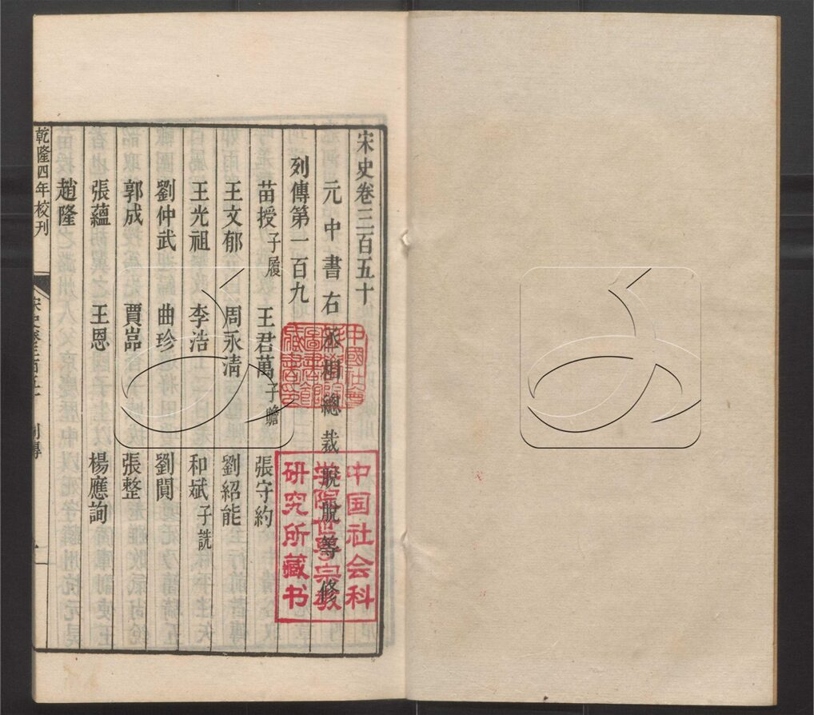 宋史卷三百五十
元中書右丞相總裁脫脫等修
列傳第一百九
苗授 子履 王君萬 子贍 張守約
王文郁 周永清 劉紹能
王光祖 李浩 和斌 子詵
劉仲武 曲珍 劉闃
郭成 賈嵓 張整
張蘊 王恩 楊應詢
趙隆
乾隆四年校刊
宋史卷三百五十 列傳
中国社会科
学院世界宗教
研究所藏书